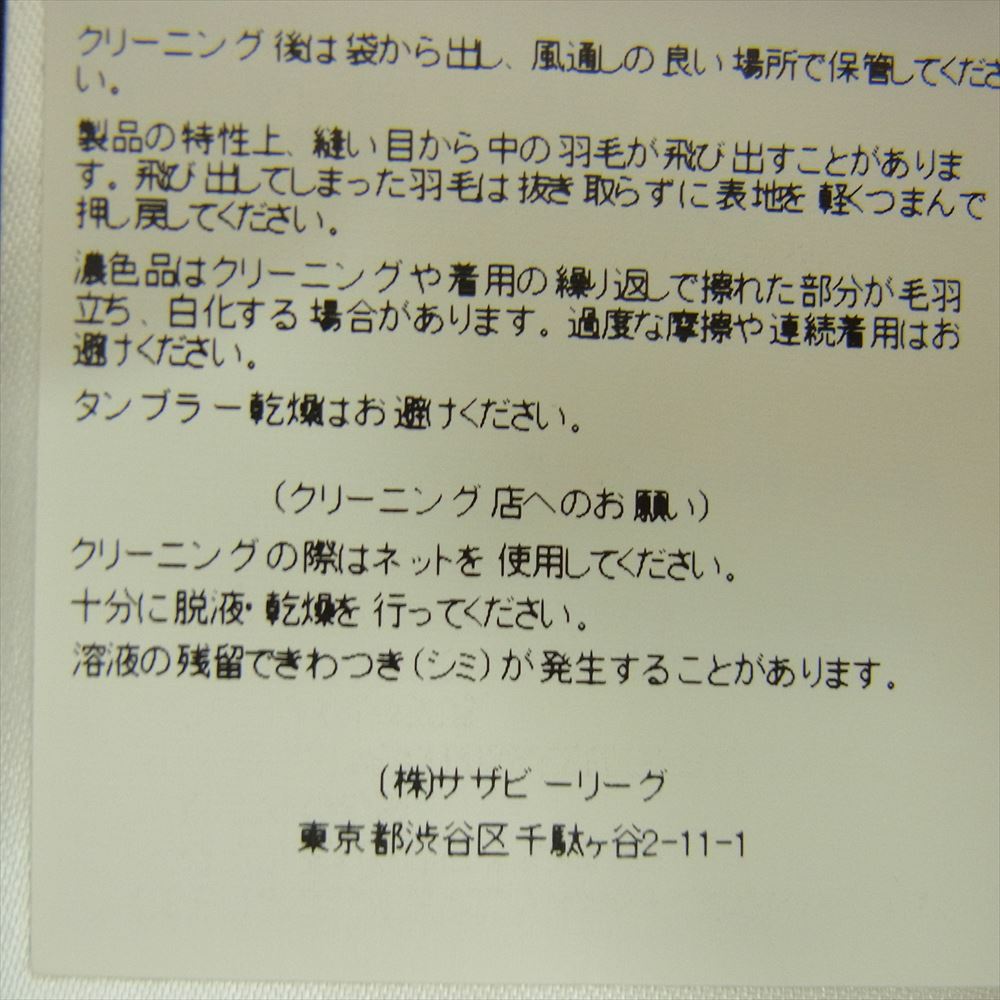 クリーニング後は袋から出し、風通しの良い場所で保管してくださ
い。
製品の特性上、縫い目から中の羽毛が飛び出すことがありま
す。飛び出してしまった羽毛は抜き取らずに表地を軽くつまんで
押し戻してください。
濃色品はクリーニングや着用の繰り返しで擦れた部分が毛羽
立ち、白化する場合があります。過度な摩擦や連続着用はお
避けください。
タンブラー乾燥はお避けください。
(クリーニング店へのお願い)
クリーニングの際はネットを使用してください。
十分に脱液・乾燥を行ってください。
溶液の残留できわつき(シミ)が発生することがあります。
(株)サザビーリーグ
東京都渋谷区千駄ヶ谷2-11-1